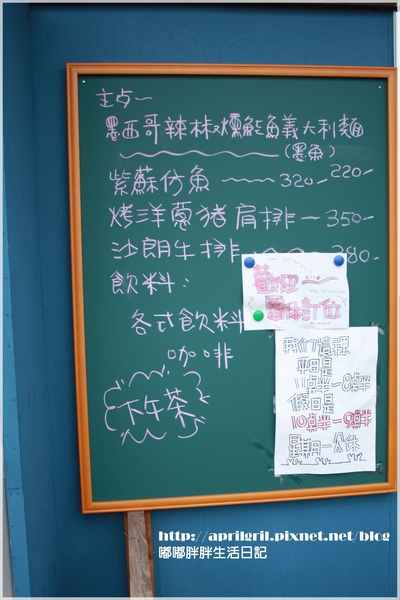 主点~
墨西哥辣椒燻魷魚義大利麵
(墨魚)
220-
紫蘇仿魚 320-
烤洋蔥豬肩排-350-
沙朗牛排 380-
飲料:
各式飲料
咖啡
下午茶
歡迎
電話訂位
我們這裡
平日是
11點半~8點半
假日是
10點半~9點半
星期一公休
http://aprilgril.pixnet.net/blog
嘟嘟胖胖生活日記